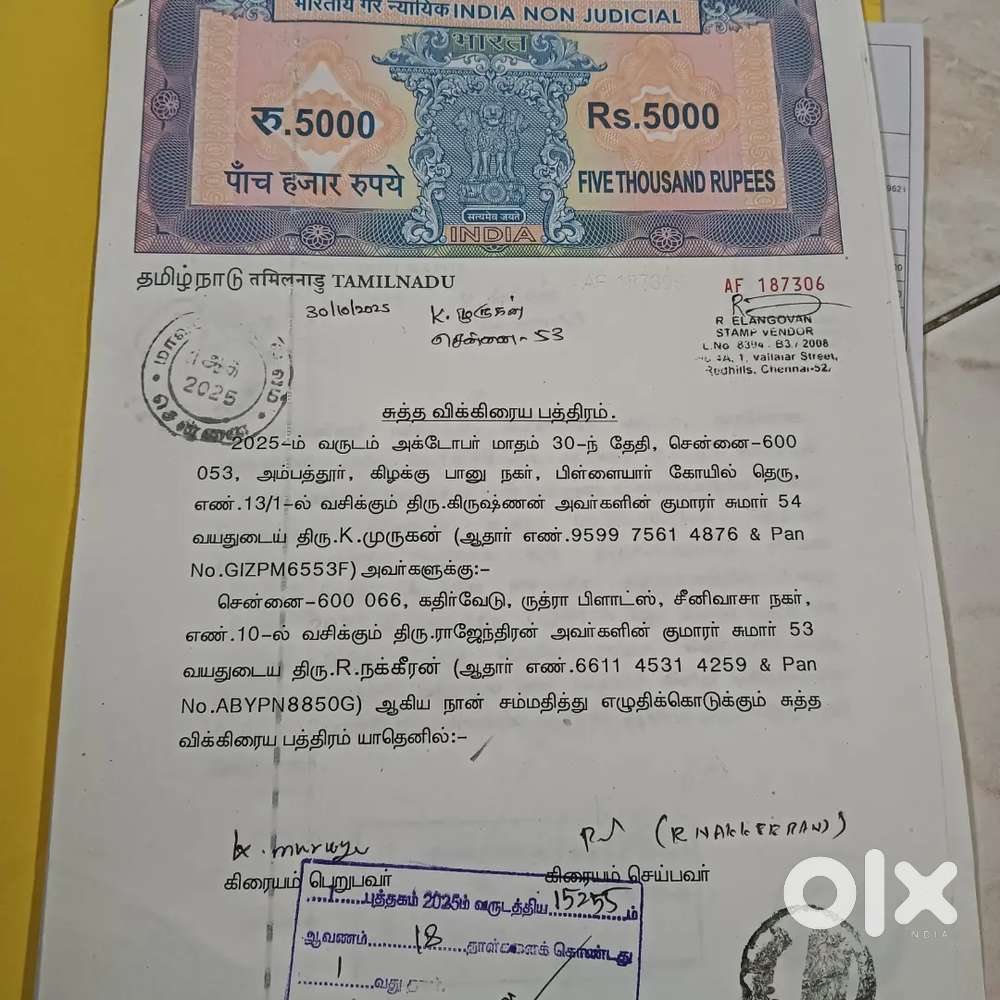 भारतीय गैर न्यायिक INDIA NON JUDICIAL
भारत
रु.5000
Rs.5000
पाँच हजार रुपये
FIVE THOUSAND RUPEES
सत्यमेव जयते
INDIA
தமிழ்நாடு तमिलनाडु TAMILNADU
AF 187306
30/10/2025
K. முருகன்
சென்னை - 53
R ELANGOVAN
STAMP VENDOR
L.No 8394 - B3 / 2008
1, Vallalar Street,
Redhills, Chennai-52.
2025
சென்னை
சுத்த விக்கிரைய பத்திரம்.
2025-ம் வருடம் அக்டோபர் மாதம் 30-ந் தேதி, சென்னை-600
053, அம்பத்தூர், கிழக்கு பானு நகர், பிள்ளையார் கோயில் தெரு,
எண்.13/1-ல் வசிக்கும் திரு.கிருஷ்ணன் அவர்களின் குமாரர் சுமார் 54
வயதுடைய் திரு.K.முருகன் (ஆதார் எண்.9599 7561 4876 & Pan
No.GIZPM6553F) அவர்களுக்கு:-
சென்னை-600 066, கதிர்வேடு, ருத்ரா பிளாட்ஸ், சீனிவாசா நகர்,
எண்.10-ல் வசிக்கும் திரு.ராஜேந்திரன் அவர்களின் குமாரர் சுமார் 53
வயதுடைய திரு.R.நக்கீரன் (ஆதார் எண்.6611 4531 4259 & Pan
No.ABYPN8850G) ஆகிய நான் சம்மதித்து எழுதிக்கொடுக்கும் சுத்த
விக்கிரைய பத்திரம் யாதெனில்:-
(R NAKKEERAN)
கிரையம் பெறுபவர்
கிரையம் செய்பவர்
1 புத்தகம் 2025ம் வருடத்திய 15255 ம்
ஆவணம் 18 தாள்களைக் கொண்டது
1 வது தாள்
olx
INDIA